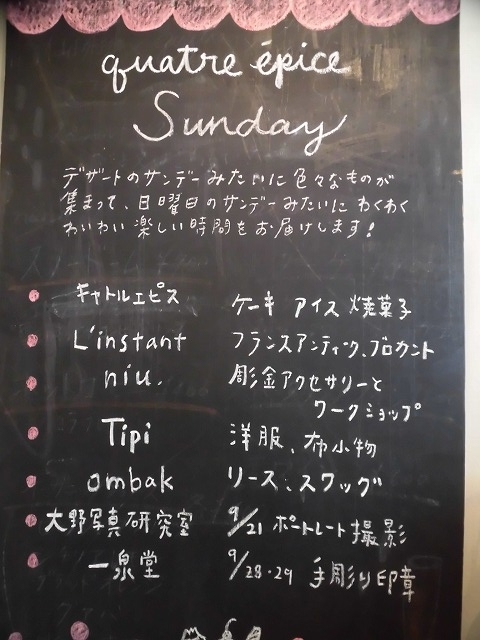 quatre épice
Sunday
デザートのサンデーみたいに色々なものが
集まって、日曜日のサンデーみたいに わくわく
わいわい 楽しい時間を お届けします!
キャトルエピス ケーキ アイス 焼菓子
L'instant フランスアンティーク、ブロカント
niu. 彫金アクセサリーと
ワークショップ
Tipi 洋服、布小物
ombak リース、スワッグ
大野写真研究室 9/21 ポートレート撮影
一泉堂 9/28・29 手彫り印章